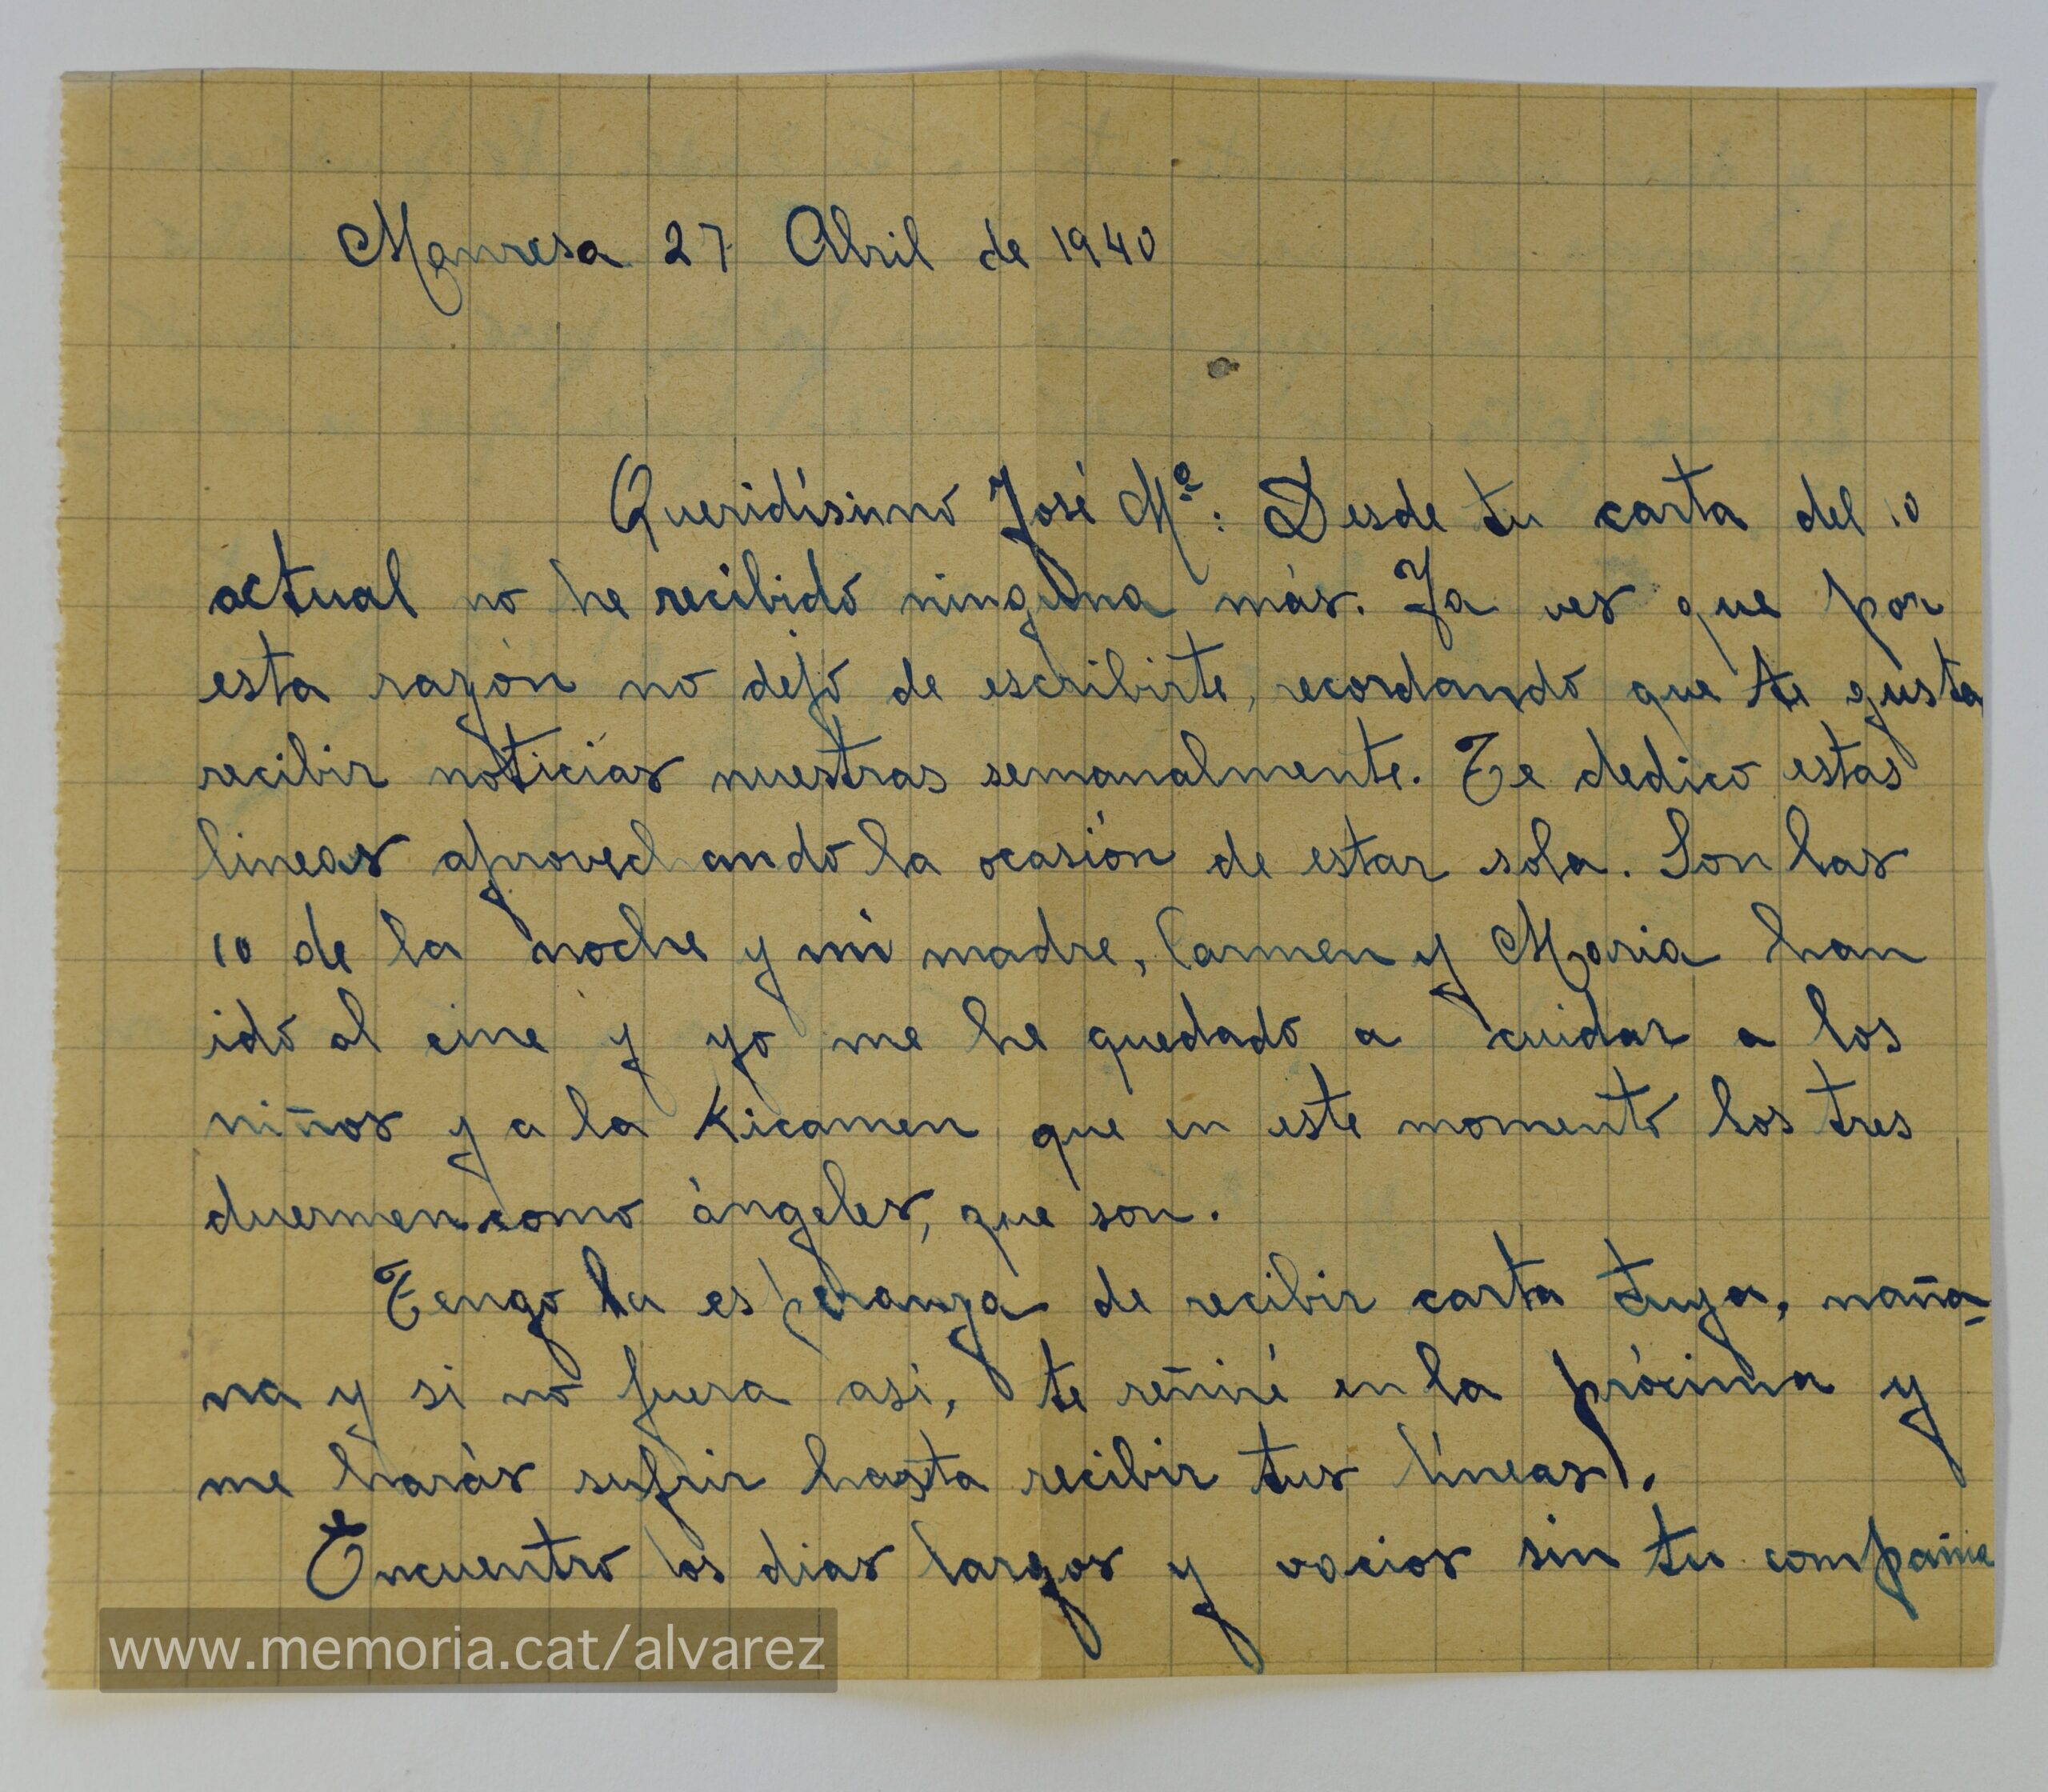 Manresa 27 Abril de 1940
Queridísimo José Mª: Desde tu carta del 10
actual no he recibido ninguna más. Ya ves que por
esta razón no dejo de escribirte, recordando que te gusta
recibir noticias nuestras semanalmente. Te dedico estas
lineas aprovechando la ocasión de estar sola. Son las
10 de la noche y mi madre, Carmen y Maria han
ido al cine y yo me he quedado a cuidar a los
niños y a la Kicamen que en este momento los tres
duermen como ángeles, que son.
Tengo la esperanza de recibir carta tuya, maña-
na y si no fuera asi, te reñiré en la prócima y
me harás sufrir hasta recibir tus líneas).
Encuentro los dias largos y vacios sin tu compañia
www.memoria.cat/alvarez